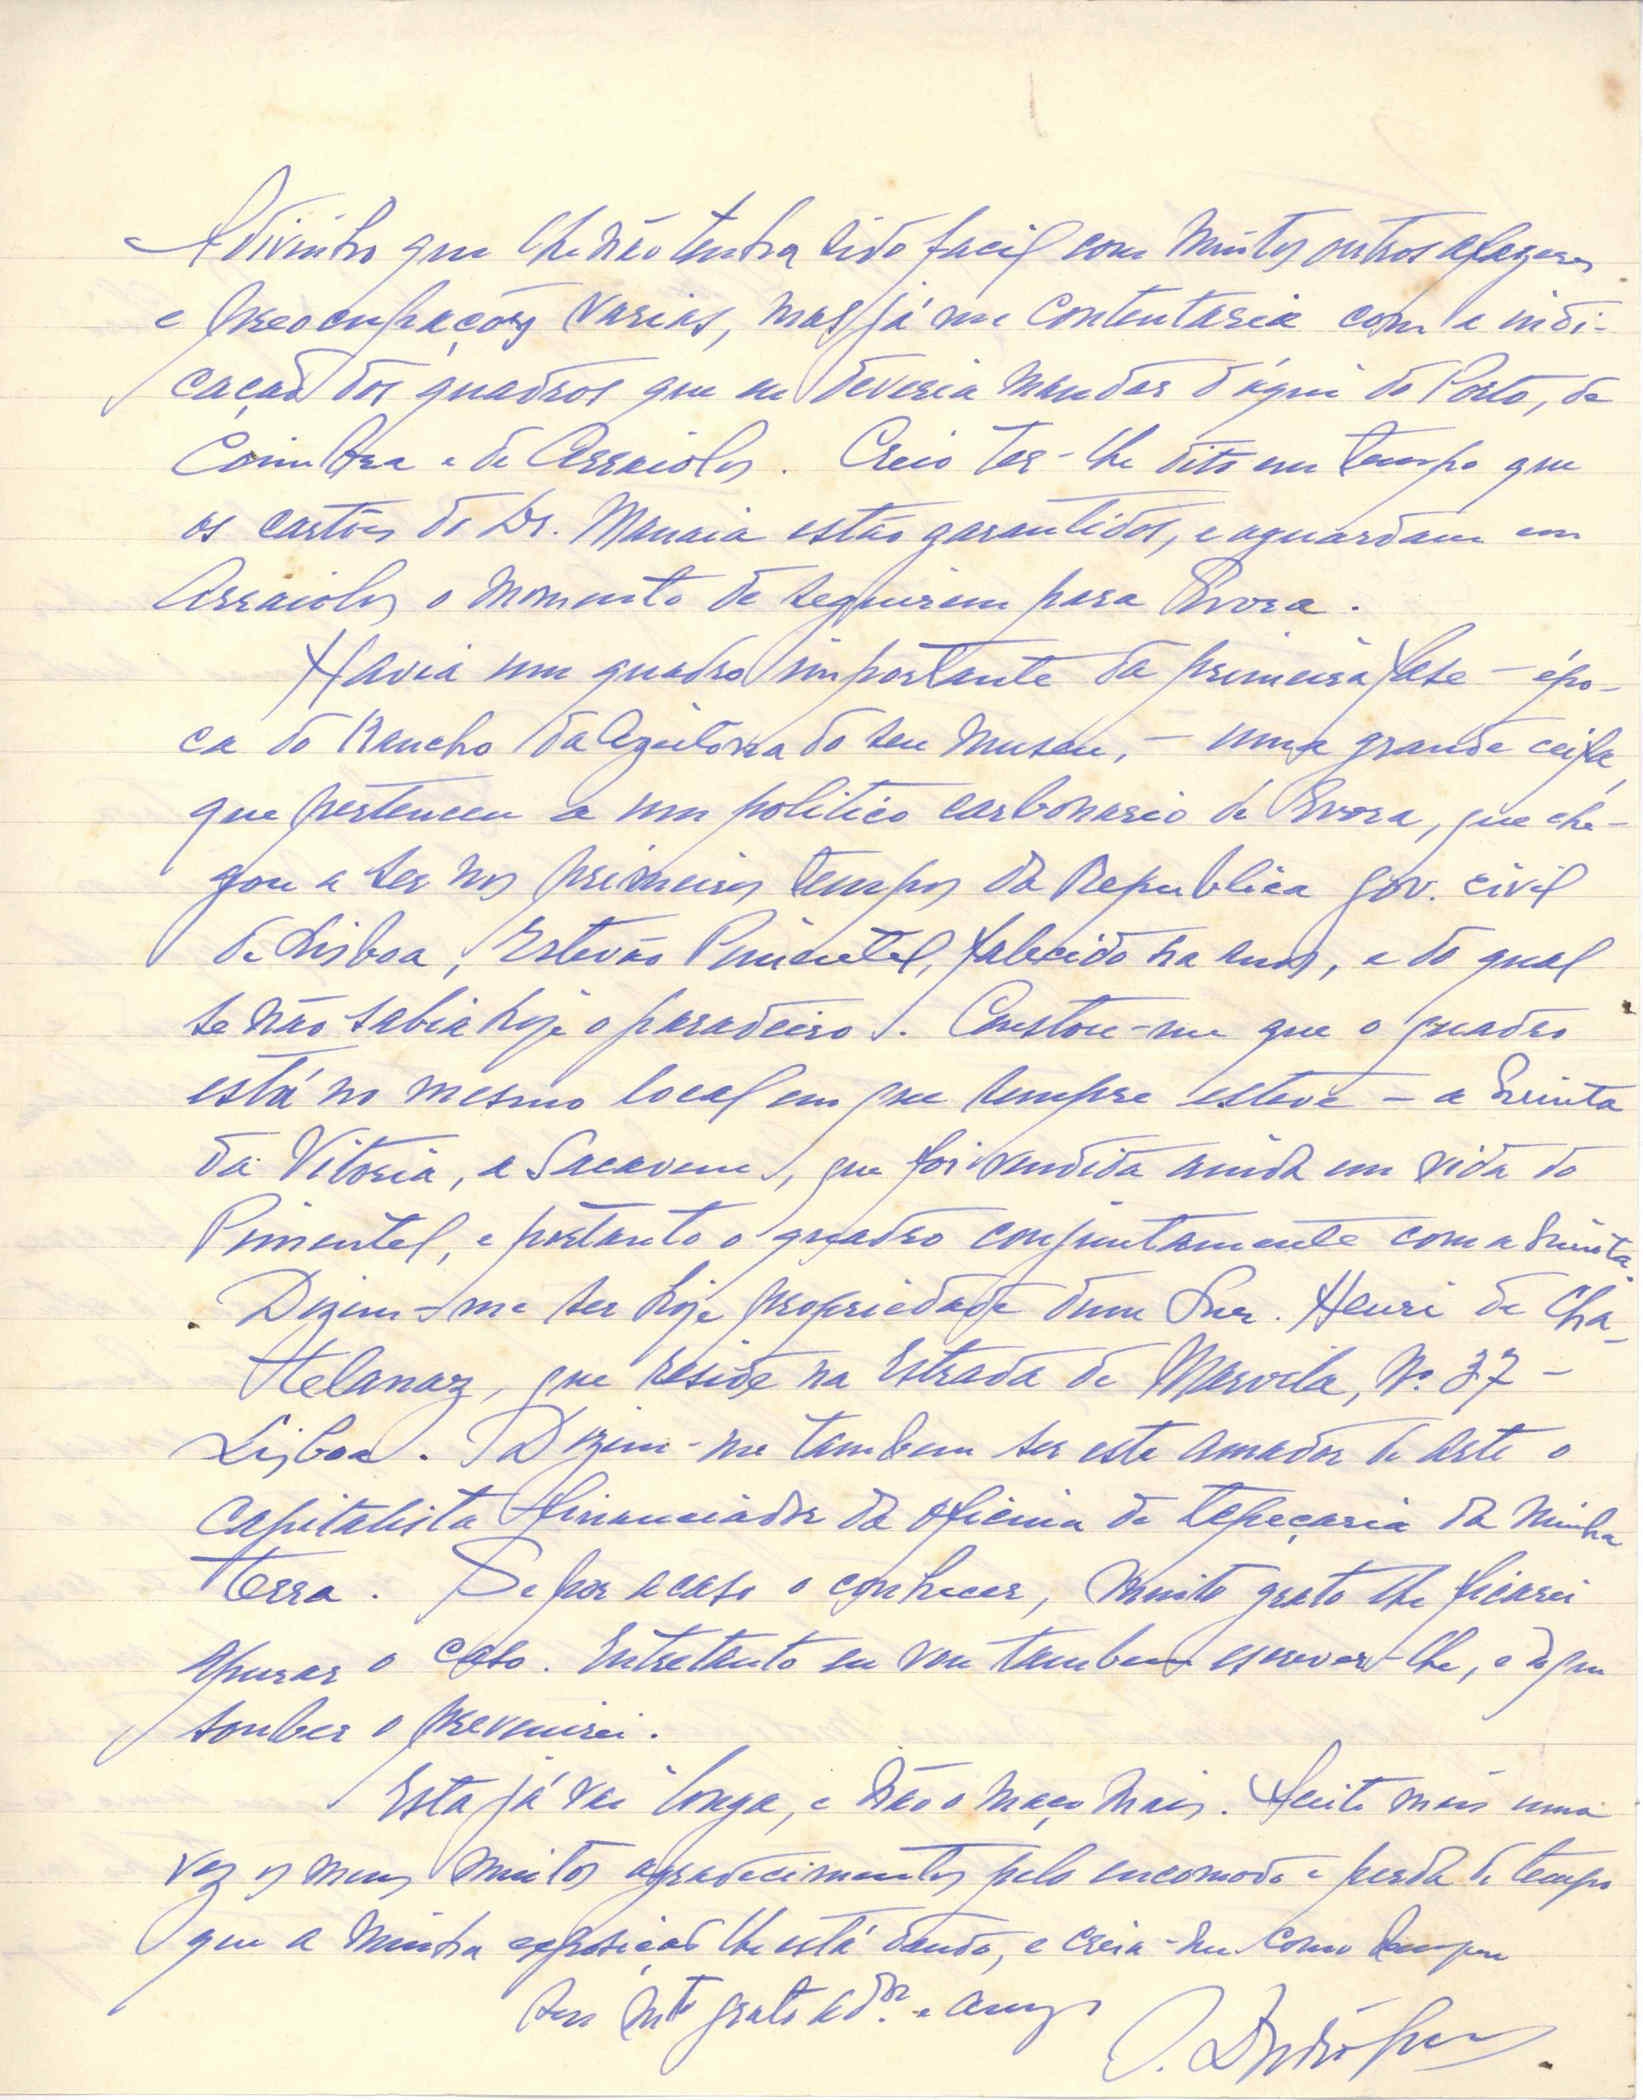 Adivinho que lhe não tenha sido facil com muitos outros afazeres
e preocupações varias, mas já me contentaria com a indi-
cação dos quadros que eu deveria mandar d'áqui do Porto, de
Coimbra e de Arraiolos. Creio ter-lhe dito em tempo que
os cartões do Dr. Manaia estão garantidos, e aguardam em
Arraiolos o momento de seguirem para Evora.
Havia um quadro importante da primeira fase – épo-
ca do Rancho da Azeitona do seu museu, – uma grande ceifa,
que pertenceu a um politico carbonario de Evora, que che-
gou a ser nos primeiros tempos da Republica gov. civil
de Lisboa, Estevão Pimentel, falecido ha anos, e do qual
se não sabia hoje o paradeiro. Constou-me que o quadro
está no mesmo local em que sempre esteve – a Quinta
da Vitoria, a Sacavem, que foi vendida ainda em vida do
Pimentel, e portanto o quadro conjuntamente com a Quinta.
Dizem-me ser hoje propriedade dum Snr. Henri de Cha-
telanaz, que reside na Estrada de Marvila, Nº. 37 –
Lisboa. Dizem-me tambem ser este amador de arte o
capitalista financiador da oficina de tapeçaria da minha
terra. Se por acaso o conhecer, muito grato lhe ficarei
apurar o caso. Entretanto eu vou tambem escrever-lhe, e do que
souber o prevenirei.
Esta já vai longa, e não o maço mais. Aceite mais uma
vez os meus muitos agradecimentos pelo encomodo e perda de tempo
que a minha exposição lhe está dando, e creia-me como sempre
seu mtº grato adºr. e amigo